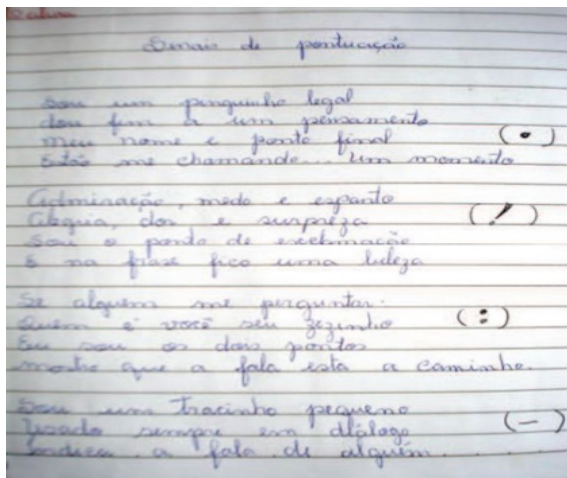 Sinais de pontuação
Sou um pinguinho legal
dou fim a um pensamento
meu nome é ponto final (.)
Estão me chamando... Um momento
Admiração, medo e espanto
Alegria, dor e surpreza (!)
Sou o ponto de exclamação
E na frase fico uma beleza
Se alguém me perguntar:
Quem é você seu zezinho (:)
Eu sou os dois pontos
mostro que a fala esta a caminho.
Sou um tracinho pequeno
Usado sempre em diálogo (—)
Indica a fala de alguém